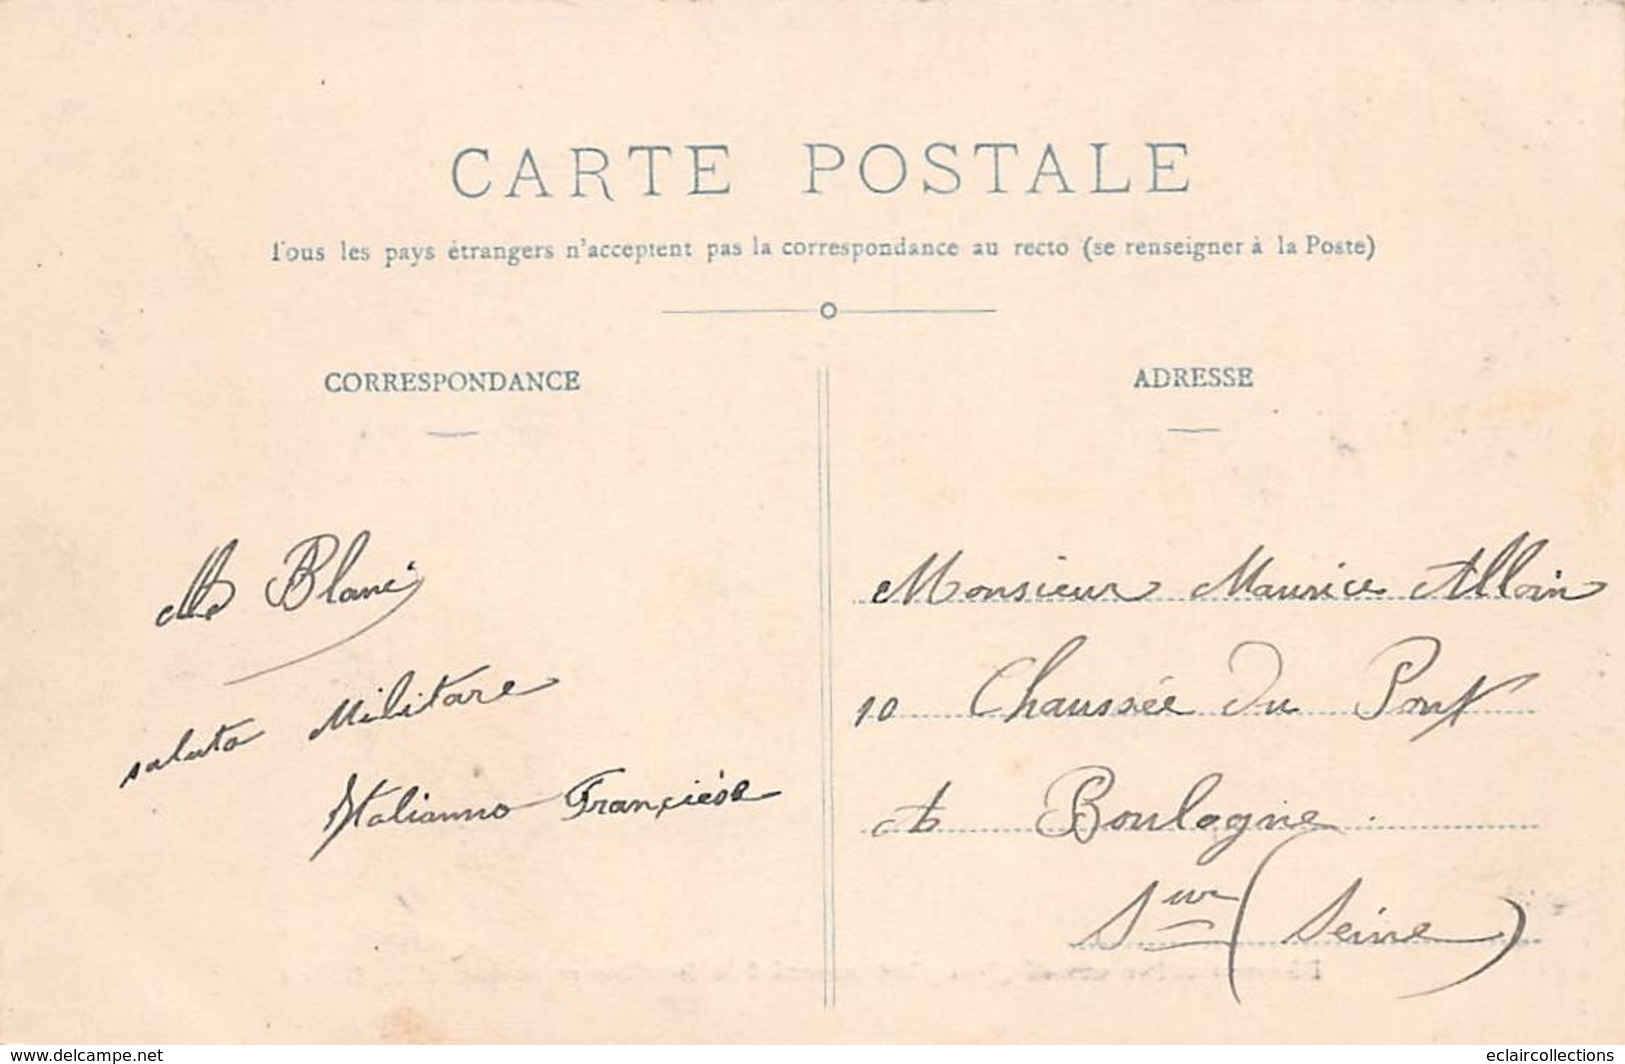 CARTE POSTALE
Tous les pays étrangers n'acceptent pas la correspondance au recto (se renseigner à la Poste)
CORRESPONDANCE
ADRESSE
Blanc
saluto Militare
Italianno Françiése
Monsieur Maurice Alloin
10 Chaussée Du Pont
A Boulogne
Sur (Seine)
www.delcampe.net
eclaircollections